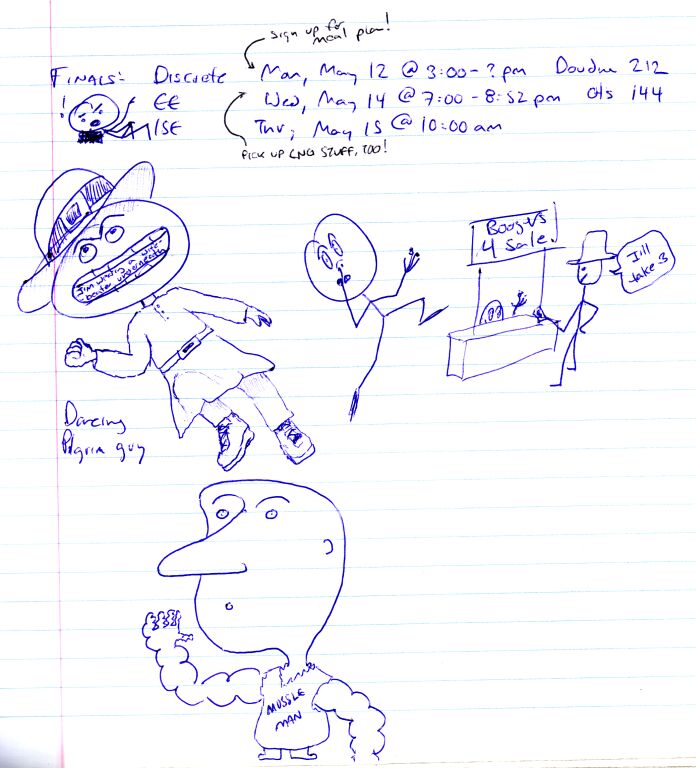 Sign up for
meal plan!
FINALS: Discrete Mon, May 12 @ 3:00-? pm Doudna 212
! EE Wed, May 14 @ 7:00 - 8:52 pm Ots 144
ISE Thur, May 15 @ 10:00 am
PICK UP STUFF, TOO!
Boogers
4 Sale.
I'll
take 3
I'm wearing a wife-
beater underneath
Dancing
Pilgrim guy
MUSSLE
MAN